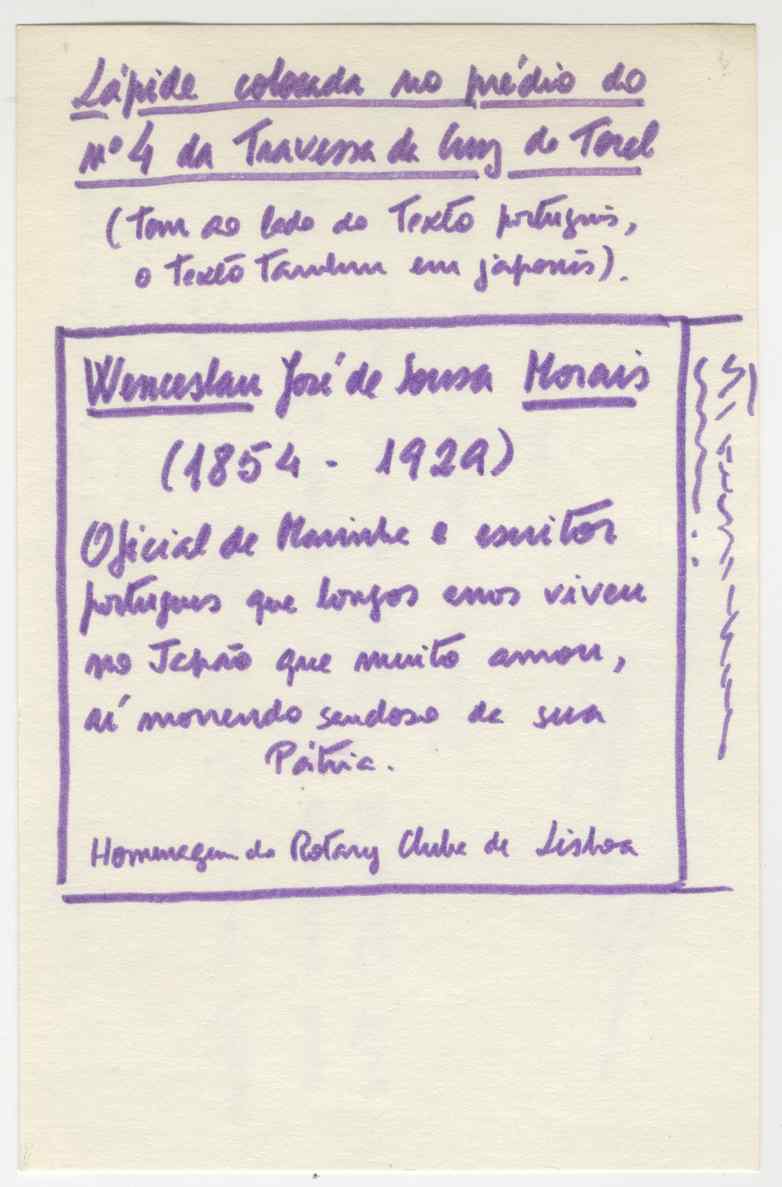 Lápide colocada no prédio do
nº 4 da Travessa da Cruz do Torel
(Tem ao lado do Texto português,
o texto Também em japonês).
Wenceslau José de Sousa Morais
(1854 - 1929)
Oficial de Marinha e escritor
português que longos anos viveu
no Japão que muito amou,
aí morrendo saudoso da sua
Pátria.
Homenagem do Rotary Clube de Lisboa